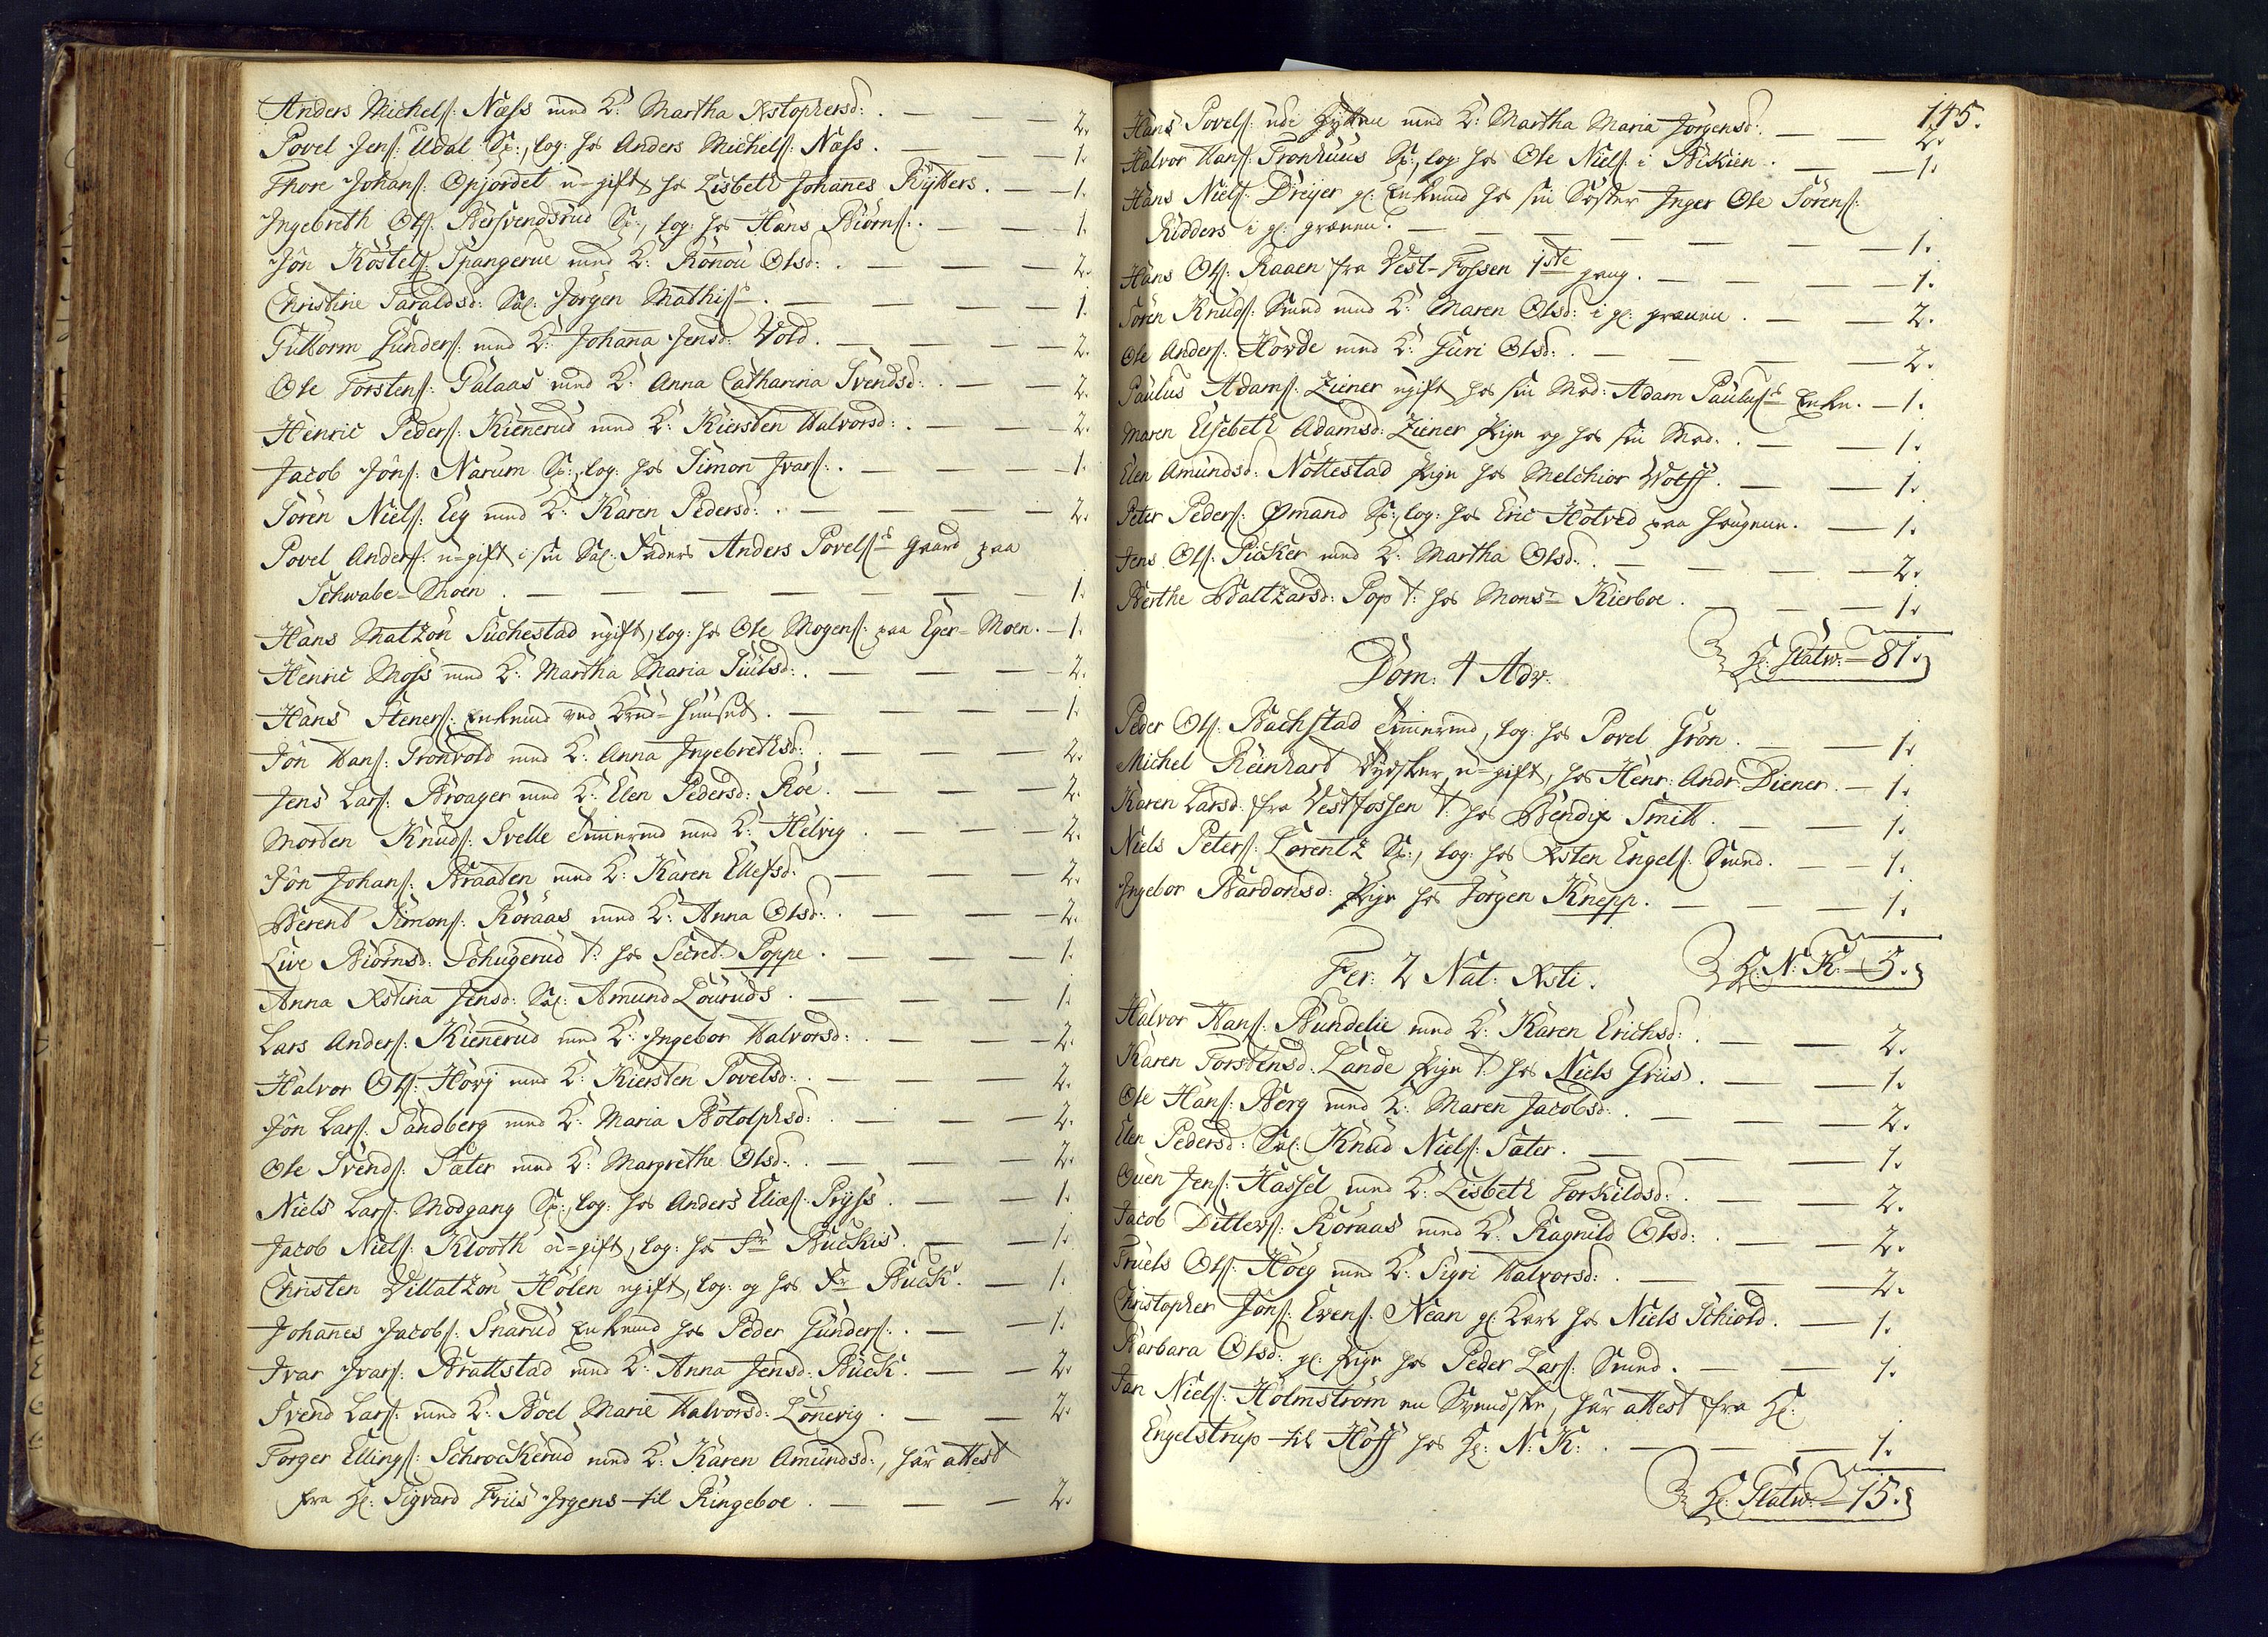 Anders Michels: Næss med K: Martha Xstophersd: . — — — 2.
Povel Jens: Udal Sp:, log: hos Anders Michels: Næss . — — — 1.
Thore Johans: Opjordet u-gift, hos Lisbeth Johannes Rytters . — — 1.
Ingebreth Ols: Bersvendsrud Sp:, log: hos Hans Biörns: . — — — 1.
Jön Kostels: Spangerue med K: Ronnou Olsd: . — — — 2.
Christine Taraldsd: Sal: Jörgen Mathiss . — — — 1.
Guttorm Gunders: med K: Johanna Jensd: Vold . — — — 2.
Ole Torstens: Palaas med K: Anna Catharina Svendsd: . — — 2.
Henric Peders: Kiennerud med K: Kiersten Halvorsd: . — — 2.
Jacob Jöns: Narum Sp:, log: hos Simon Ivars: . — — — 1.
Sören Niels: Eeg med K: Karen Pedersd: . — — — 2.
Povel Anders: u-gift i sin Sal: Faders Anders Povels: Gaard paa
Schwabe-Moen . — — — — — 1.
Hans Matzön Suchestad ugift, log: hos Ole Mogens: paa Eger-Moen . — 1.
Henric Moss med K: Martha Maria Juulsd: . — — — 2.
Hans Steners: Enkemd ved Krud-Huuset . — — — 1.
Jön Hans: Grönvold med K: Anna Ingebrethsd: . — — — 2.
Jens Lars: Broager med K: Elen Pedersd: Röe . — — — 2.
Morten Knuds: Svelle Tömmermd med K: Helvig . — — 2.
Jön Johans: Braaten med K: Karen Ellefsd: — — — 2.
Berent Simons: Koraas med K: Anna Olsd: . — — — 2.
Live Biörnsd: Schugerud t: hos Secret: Poppe . — — — 1.
Anna Xstina Jensd: Sal: Amund Louruds . — — — 1.
Lars Anders: Kiennerud med K: Ingebor Halvorsd: . — — 2.
Halvor Ols: Hövj med K: Kiersten Povelsd: . — — — 2.
Jön Lars: Sandberg med K: Maria Botolphsd: . — — — 2.
Ole Svends: Sæter med K: Margrethe Olsd: . — — — 2.
Niels Lars: Modgang Sp:, log: hos Anders Elias: Pryss . — — 1.
Jacob Niels: Klooth u-gift, log: hos Fr Buckis . — — 1.
Christen Villatzön Hölen ugift, log: og hos Fr Buck . — 1.
Johannes Jacobs: Snarud Enkemd hos Peder Gunders: . — — 1.
Ivar Ivars: Brattstad med K: Anna Jensd: Buck . — — 2.
Svend Lars: med K: Boel Marie Halvorsd: Lönnevig . — — 2.
Torger Ellings: Schrockerud med K: Karen Amundsd:, har attest
fra Hr: Sigvard Friis Irgens til Ringeboe . — — — 2.
145.
Hans Povels: ude Hytten med K: Martha Maria Jörgensd: . — — 2.
Halvor Hans: Tronhuus Sp:, log: hos Ole Niels: i Bekien . — — 1.
Hans Niels: Dreyer gl: Enkemd hos sin Söster Inger Ole Sörens:
Ridders i gl: gruven . — — — — — 1.
Hans Ols: Raaen fra Vest-Fossen 1ste gang . — — — 1.
Sören Knuds: Smed med K: Maren Olsd: i gl: gruven . — — 2.
Ole Anders: Hovde med K: Guri Olsd: . — — — 2.
Paulus Adams: Ziener ugift hos sin Mod: Adam Pauluss Enke . — 1.
Maren Elsebeth Adamsd: Ziener Pige og hos sin Mod: . — — 1.
Elen Amundsd: Nöttestad Pige hos Melchior Wolff . — — 1.
Peter Peders: Ömand Sp:, log: hos Eric Holved paa Haugene . — 1.
Jens Ols: Picker med K: Martha Olsd: . — — — 2.
Berthe Baltzarsd: Pop t: hos Monsr Kierboe . — — 1.
Hr: Statw: — 81.
Dom: 4 Adv:
Peder Ols: Bachstad Tömmermd, log: hos Povel Grön . — — 1.
Michel Reinhart Tydsker, u-gift, hos Henr: Andr: Diener . — 1.
Karen Larsd: fra Vestfossen t: hos Bendix Smitt . — — 1.
Niels Peters: Lorentz Sp:, log: hos Xsten Engels: Smed . — — 1.
Ingebor Bardonsd: Pige hos Jörgen Knepp . — — — 1.
H: N: K: — 5.
Fer: 2 Nat: Xsti .
Halvor Hans: Bundelie med K: Karen Erichsd: . — — 2.
Karen Torstensd: Lande Pige t: hos Niels Griis . — — 1.
Ole Hans: Berg med K: Maren Jacobsd: . — — 2.
Elen Pedersd: Sal: Knud Niels: Sæter . — — — 1.
Ouen Jens: Hassel med K: Lisbeth Torkildsd: . — — 2.
Jacob Ditlevs: Koraas med K: Ragnild Olsd: . — — 2.
Truels Ols: Höeg med K: Sigri Halvorsd: . — — 2.
Christopher Jöns: Evens: Nean gl: Karl hos Niels Schiold . — 1.
Barbara Olsd: gl: Pige hos Peder Lars: Smed . — — 1.
Jan Niels: Holmström en Svendsker, har attest fra Hr:
Engelstrup til Höff hos Hr: N: K: . — — — 1.
Hr: Statw: — 15.